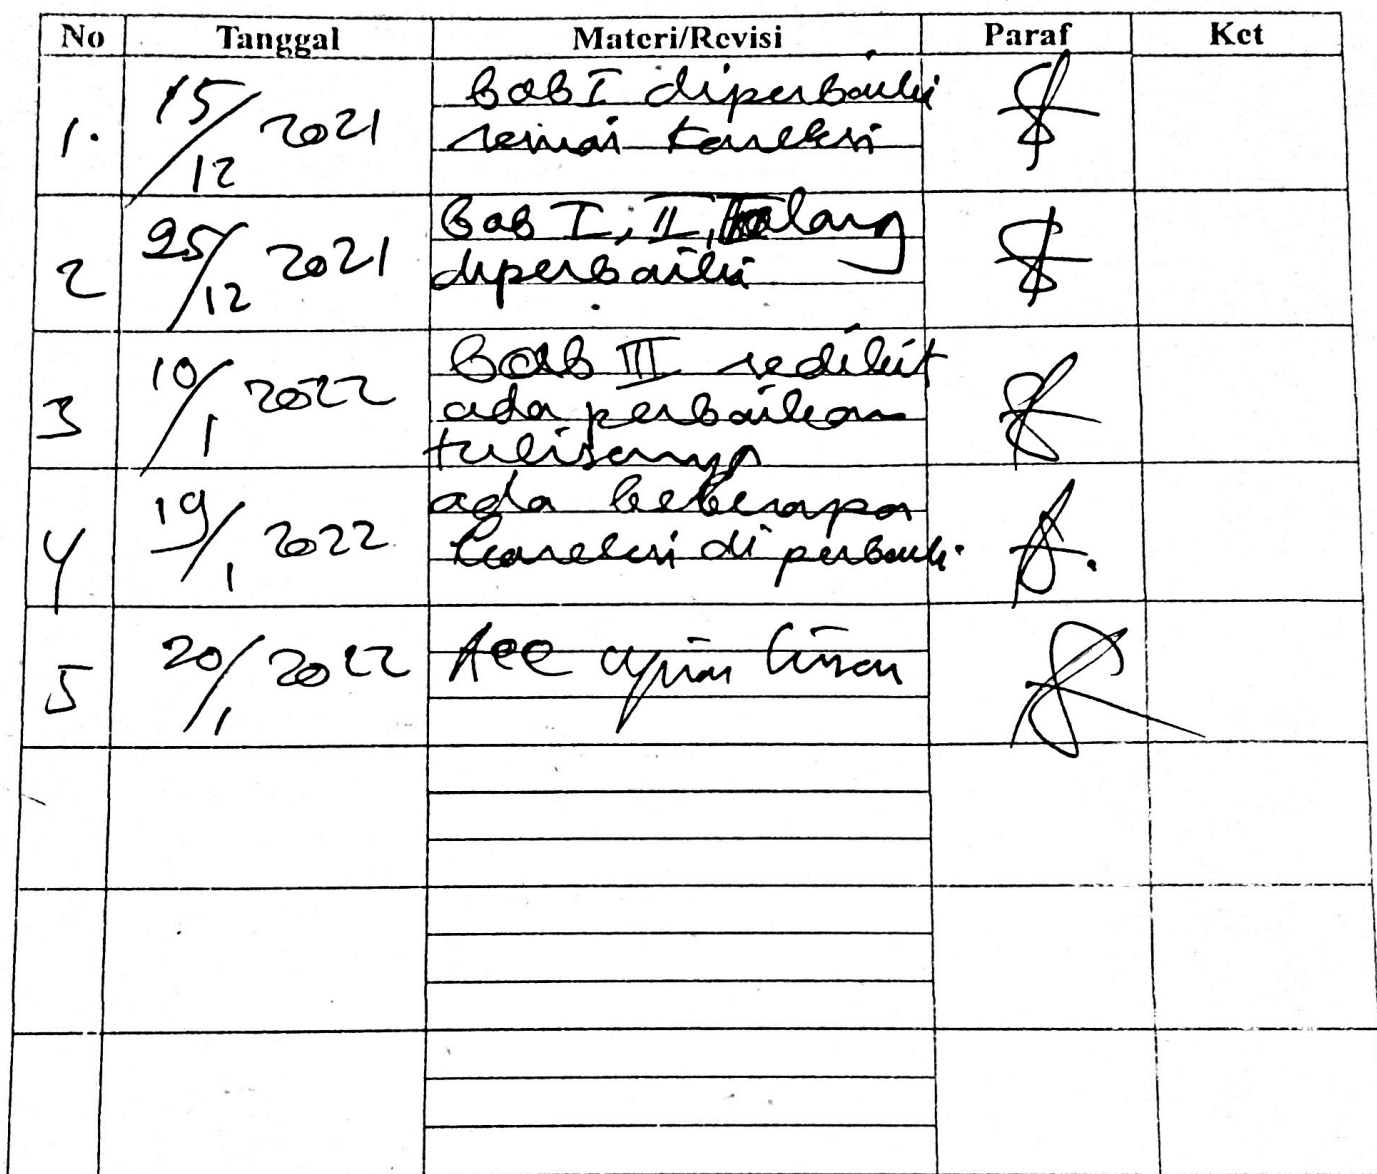 No Tanggal Materi/Revisi Paraf Ket
1. 15/12 2021 Bab I diperbaiki
sesuai koreksi
2 25/12 2021 Bab I, II,
diperbaiki
3 10/1 2022 Bab III sedikit
ada perbaikan
tulisannya
4 19/1 2022 ada beberapa
koreksi diperbaiki.
5 20/1 2022 Acc ujian